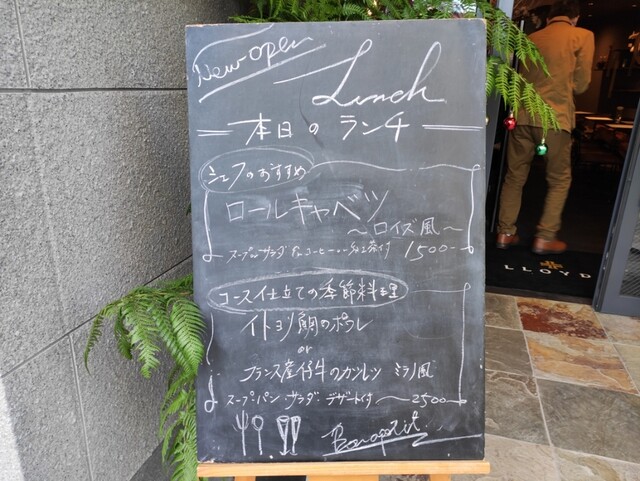 New open
Lunch
本日のランチ
シェフのおすすめ
ロールキャベツ
〜ロイズ風〜
スープorサラダ コーヒーor紅茶付 1500-
コース仕立ての季節料理
イトヨリ鯛のポワレ
or
フランス産仔牛のカツレツ ミラノ風
スープ パン サラダ デザート付 〜2500-
Bon appetit
LLOYD